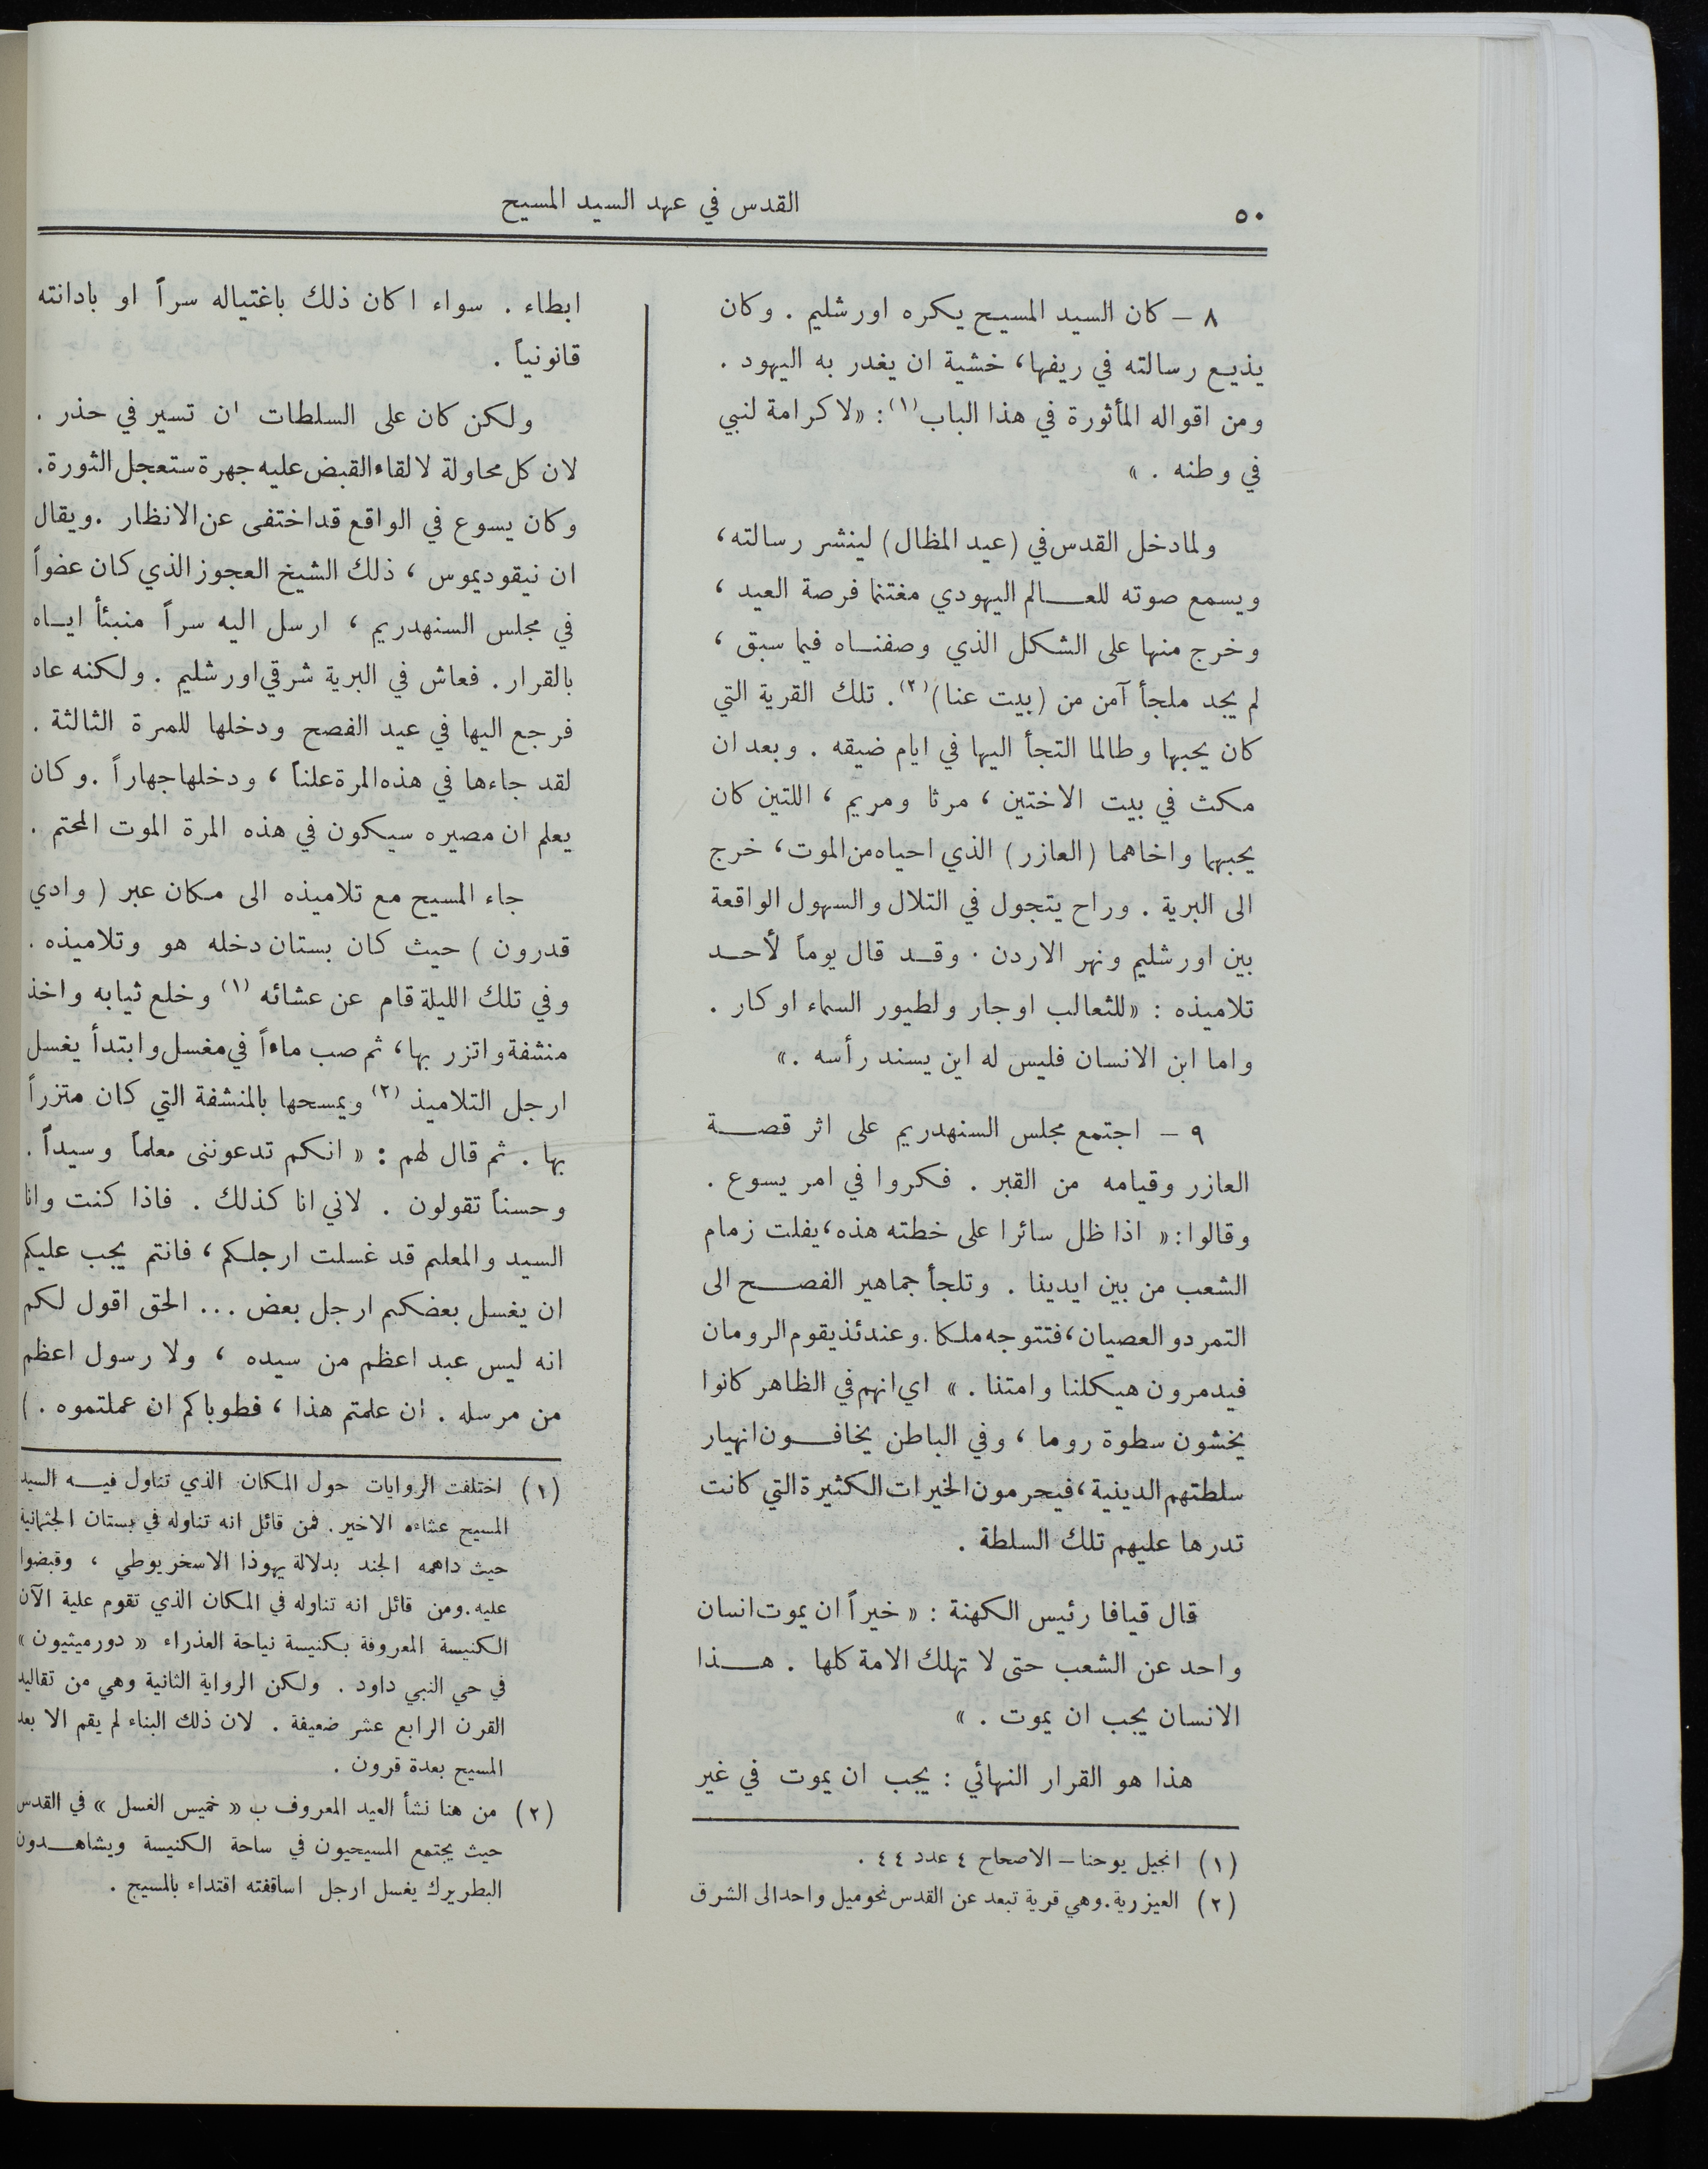 ٥٠
القدس في عهد السيد المسيح
٨ – كان السيد المسيح يكره اورشليم . وكان
يذيع رسالته في ريفها، خشية ان يغدر به اليهود .
ومن اقواله المأثورة في هذا الباب(١): «لا كرامة لنبي
في وطنه . »
ولما دخل القدس في (عيد المظال) لينشر رسالته،
ويسمع صوته للعالم اليهودي مغتنما فرصة العيد ،
وخرج منها على الشكل الذي وصفناه فيما سبق ،
لم يجد ملجأ آمن من (بيت عنا)(٢). تلك القرية التي
كان يحبها وطالما التجأ اليها في ايام ضيقه . وبعد ان
مكث في بيت الاختين ، مرثا ومريم ، اللتين كان
يحبهما واخاهما (العازر) الذي احياه من الموت، خرج
الى البرية . وراح يتجول في التلال والسهول الواقعة
بين اورشليم ونهر الاردن . وقد قال يوماً لأحد
تلاميذه : «للثعالب اوجار ولطيور السماء اوكار .
واما ابن الانسان فليس له اين يسند رأسه .»
٩ – اجتمع مجلس السنهدريم على اثر قصة
العازر وقيامه من القبر . فكروا في امر يسوع .
وقالوا: « اذا ظل سائرا على خطته هذه، يفلت زمام
الشعب من بين ايدينا . وتلجأ جماهير الفصح الى
التمرد والعصيان، فتتوجه ملكا. وعندئذ يقوم الرومان
فيدمرون هيكلنا وامتنا . » اي انهم في الظاهر كانوا
يخشون سطوة روما ، وفي الباطن يخافون انهيار
سلطتهم الدينية، فيحرمون الخيرات الكثيرة التي كانت
تدرها عليهم تلك السلطة .
قال قيافا رئيس الكهنة : « خيراً ان يموت انسان
واحد عن الشعب حتى لا تهلك الامة كلها . هذا
الانسان يجب ان يموت . »
هذا هو القرار النهائي : يجب ان يموت في غير
(١) انجيل يوحنا – الاصحاح ٤ عدد ٤٤ .
(٢) العيزرية. وهي قرية تبعد عن القدس نحو ميل واحد الى الشرق
ابطاء . سواء اكان ذلك باغتياله سراً او بادانته
قانونياً .
ولكن كان على السلطات ان تسير في حذر .
لان كل محاولة لالقاء القبض عليه جهرة ستعجل الثورة.
وكان يسوع في الواقع قد اختفى عن الانظار . ويقال
ان نيقوديموس ، ذلك الشيخ العجوز الذي كان عضواً
في مجلس السنهدريم ، ارسل اليه سراً منبئأ اياه
بالقرار . فعاش في البرية شرقي اورشليم . ولكنه عاد
فرجع اليها في عيد الفصح ودخلها للمرة الثالثة .
لقد جاءها في هذه المرة علناً ، ودخلها جهاراً . وكان
يعلم ان مصيره سيكون في هذه المرة الموت المحتم .
جاء المسيح مع تلاميذه الى مكان عبر ( وادي
قدرون ) حيث كان بستان دخله هو وتلاميذه .
وفي تلك الليلة قام عن عشائه (١) وخلع ثيابه واخذ
منشفة واتزر بها، ثم صب ماءاً في مغسل وابتدأ يغسل
ارجل التلاميذ (٢) ويمسحها بالمنشفة التي كان متزراً
بها . ثم قال لهم : « انكم تدعونني معلماً وسيداً .
وحسناً تقولون . لاني انا كذلك . فاذا كنت وانا
السيد والمعلم قد غسلت ارجلكم ، فانتم يجب عليكم
ان يغسل بعضكم ارجل بعض ... الحق اقول لكم
انه ليس عبد اعظم من سيده ، ولا رسول اعظم
من مرسله . ان علمتم هذا ، فطوباكم ان عملتموه . )
(١) اختلفت الروايات حول المكان الذي تناول فيه السيد
المسيح عشاءه الاخير . فمن قائل انه تناوله في بستان الجثمانية
حيث داهمه الجند بدلالة يهوذا الاسخريوطي ، وقبضوا
عليه. ومن قائل انه تناوله في المكان الذي تقوم علية الآن
الكنيسة المعروفة بكنيسة نياحة العذراء « دورميثيون »
في حي النبي داود . ولكن الرواية الثانية وهي من تقاليد
القرن الرابع عشر ضعيفة . لان ذلك البناء لم يقم الا بعد
المسيح بعدة قرون .
(٢) من هنا نشأ العيد المعروف ب « خميس الغسل » في القدس
حيث يجتمع المسيحيون في ساحة الكنيسة ويشاهدون
البطريرك يغسل ارجل اساقفته اقتداء بالمسيح .